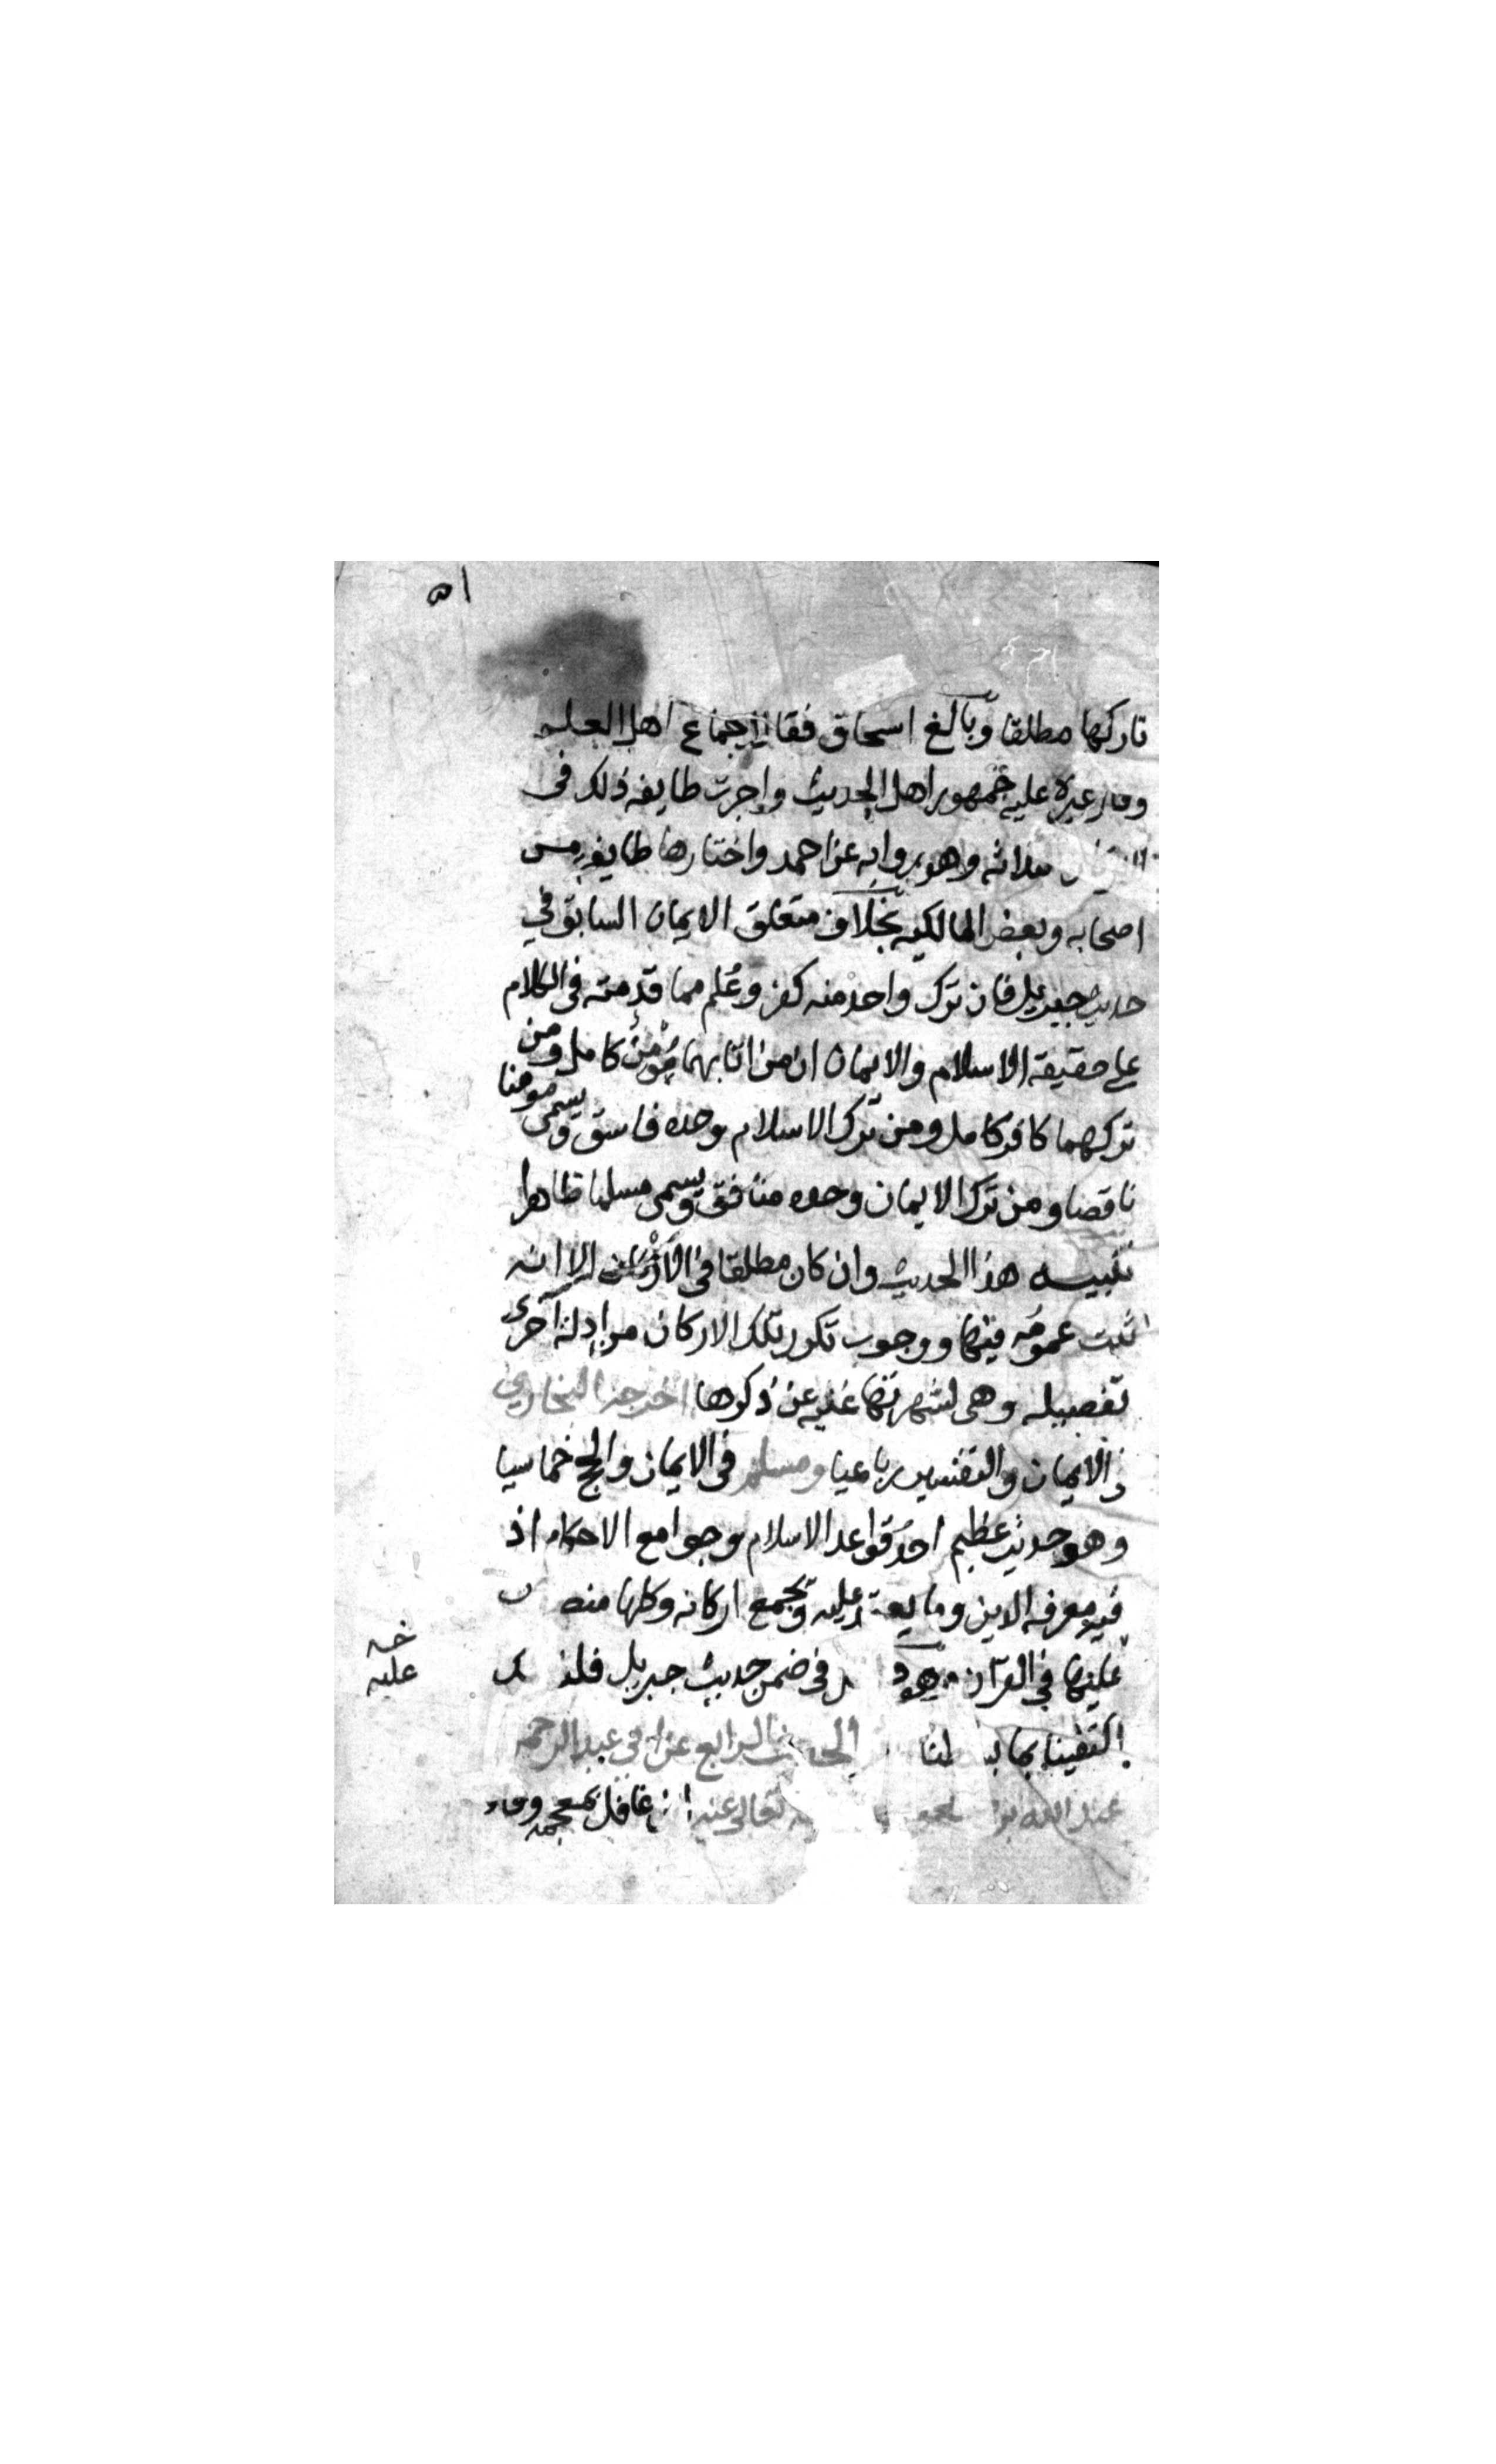 ٥١
تاركها مطلقا وبالغ اسحاق فقال اجماع اهل العلم
وقال غيره عليه جمهور اهل الحديث واجرت طايفه ذلك في
الثلاثه وهو روايه عن احمد واختارها طايفه من
اصحابه وبعض المالكيه بخلاف متعلق الايمان السابق في
حديث جبريل فان ترك واحد منه كفر وعُلم مما قدمته في الكلام
على حقيقة الاسلام والايمان ان من اتا بهما مؤمن كامل ومن
تركهما كافر كامل ومن ترك الاسلام وحده فاسق ويسمى مومنا
ناقصا ومن ترك الايمان وحده منافق ويسمى مسلما ظاهرا
تنبيه هذا الحديث وان كان مطلقا في الازمان الا انه
ثبت عمومُه فيها ووجوب تكرر تلك الاركان من ادلة اخرى
تفصيله وهي لشهرتها غنيه عن ذكرها اخرجه البخاري
في الايمان والتفسير رباعيا ومسلم في الايمان والحج خماسيا
وهو حديث عظيم احدُ قواعد الاسلام وجوامع الاحكام اذ
فيه معرفه الدين وما يعتمد عليه ومجمع اركانه وكلها منصوص
عليها في القرآن وهو في ضمن حديث جبريل فلذلك
خه
عليه
اكتفينا بما بسطنا الحديث الرابع عن ابي عبد الرحمن
عبد الله بن مسعود تعالى عنه ابن غافل بمعجمه وفاء